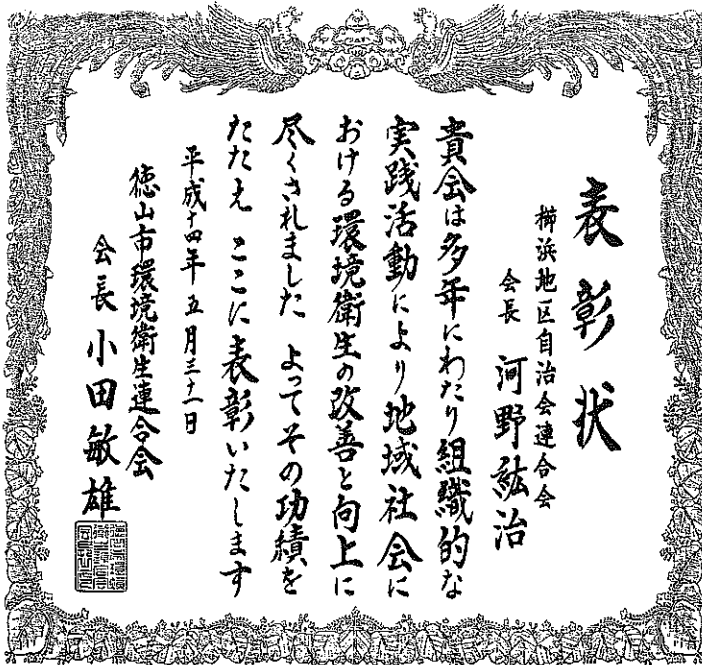 表彰状
櫛浜地区自治会連合会
会長 河野紘治
貴会は多年にわたり組織的な
実践活動により地域社会に
おける環境衛生の改善と向上に
尽くされました よってその功績を
たたえ ここに表彰いたします
平成十四年五月三十一日
徳山市環境衛生連合会
会長 小田敏雄